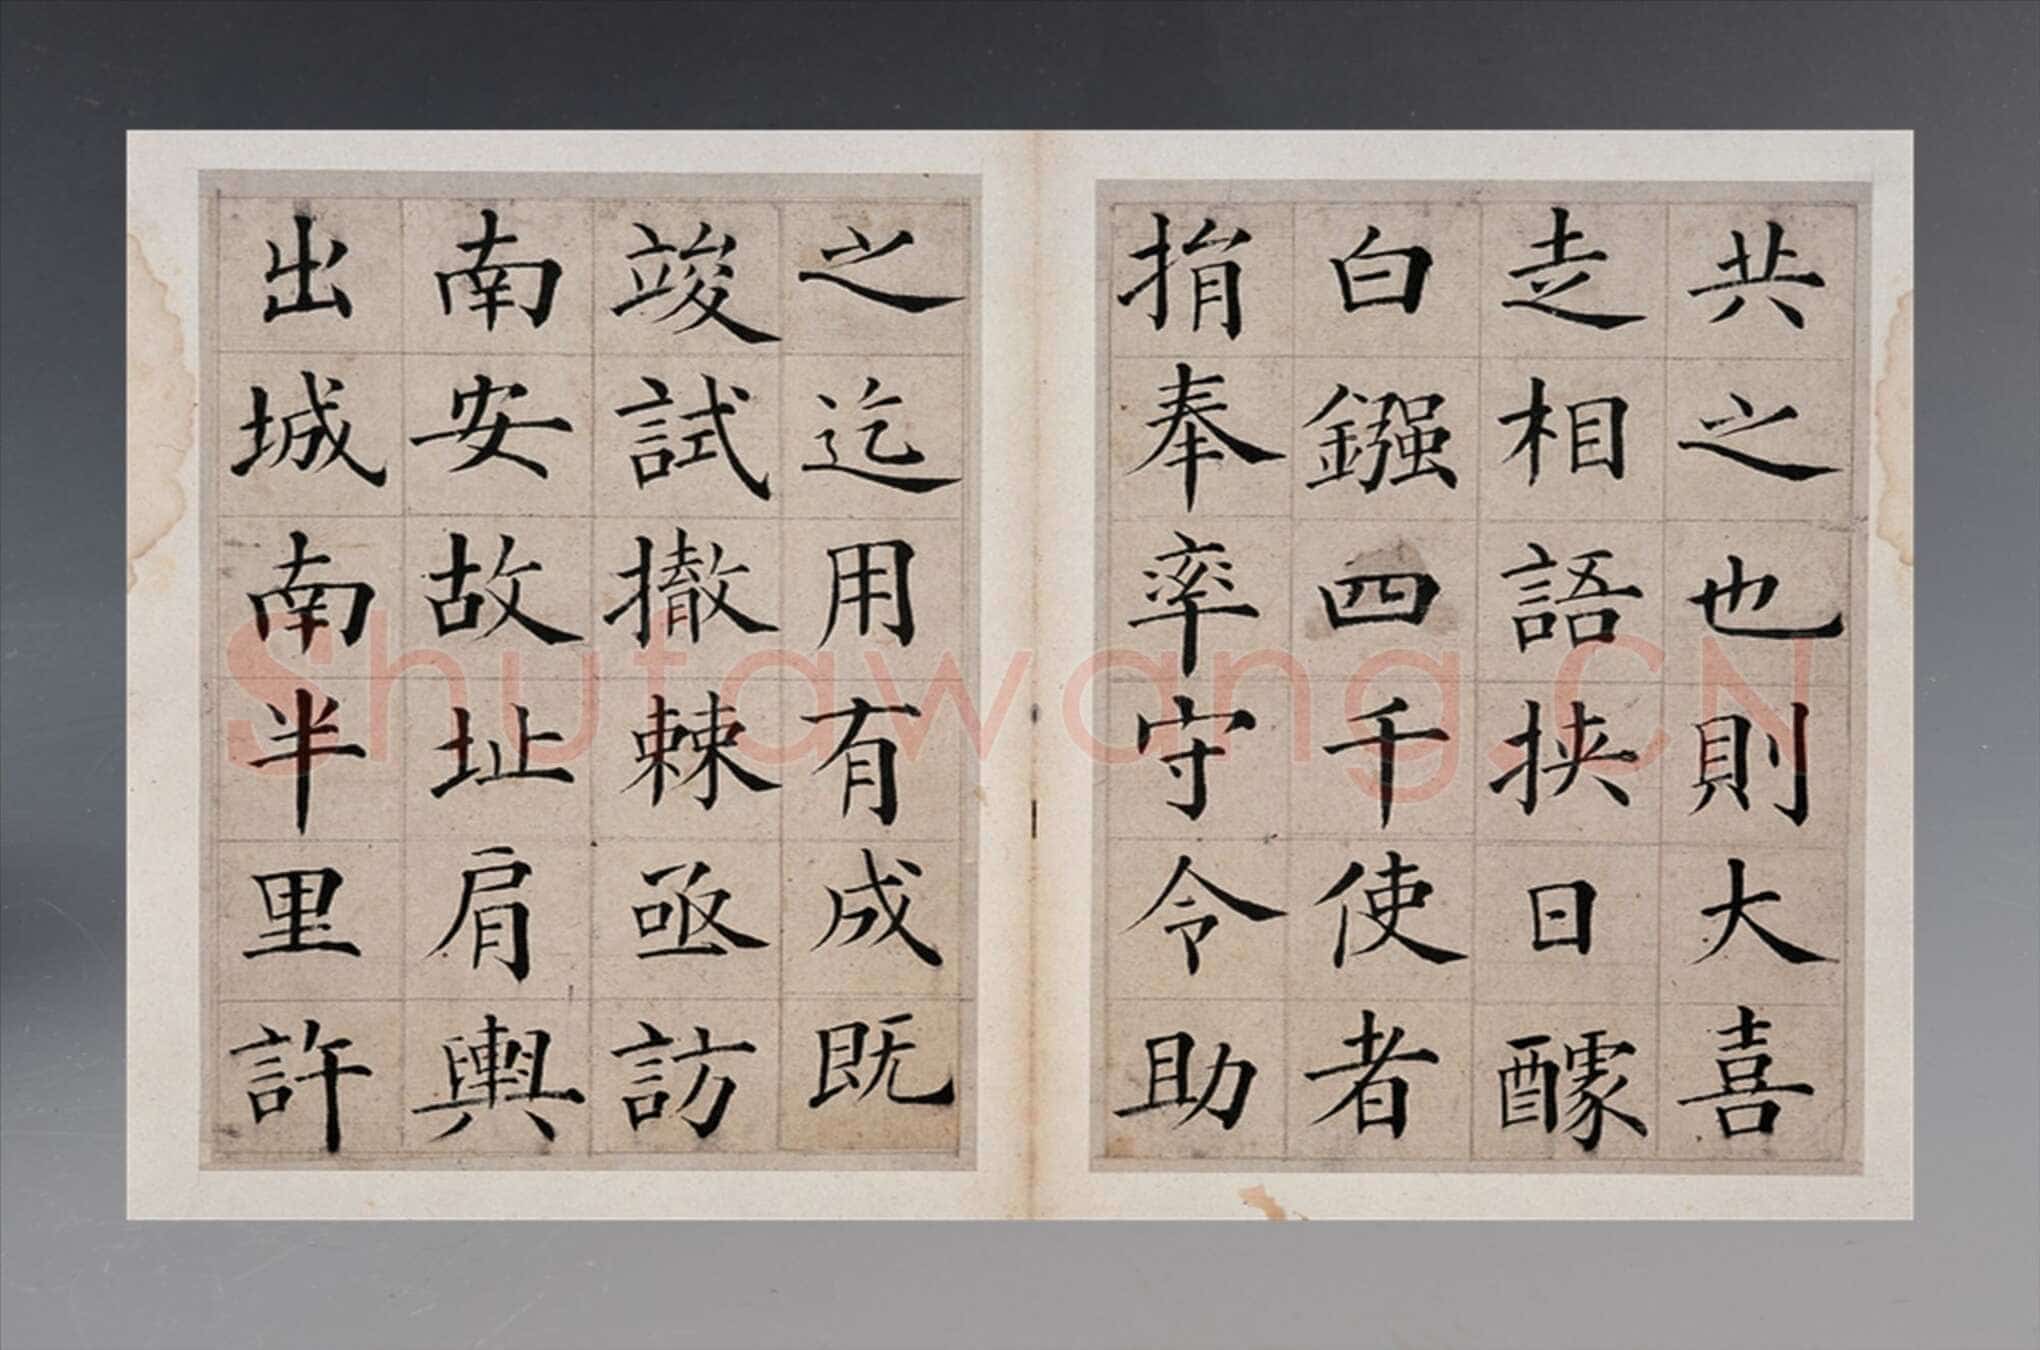 共之也則大喜
赱相語挟日醵
白鏹四千使者
捐奉率守令助
之迄用有成既
竣試撤棘亟訪
南安故址肩輿
出城南半里許
Shufawang.CN